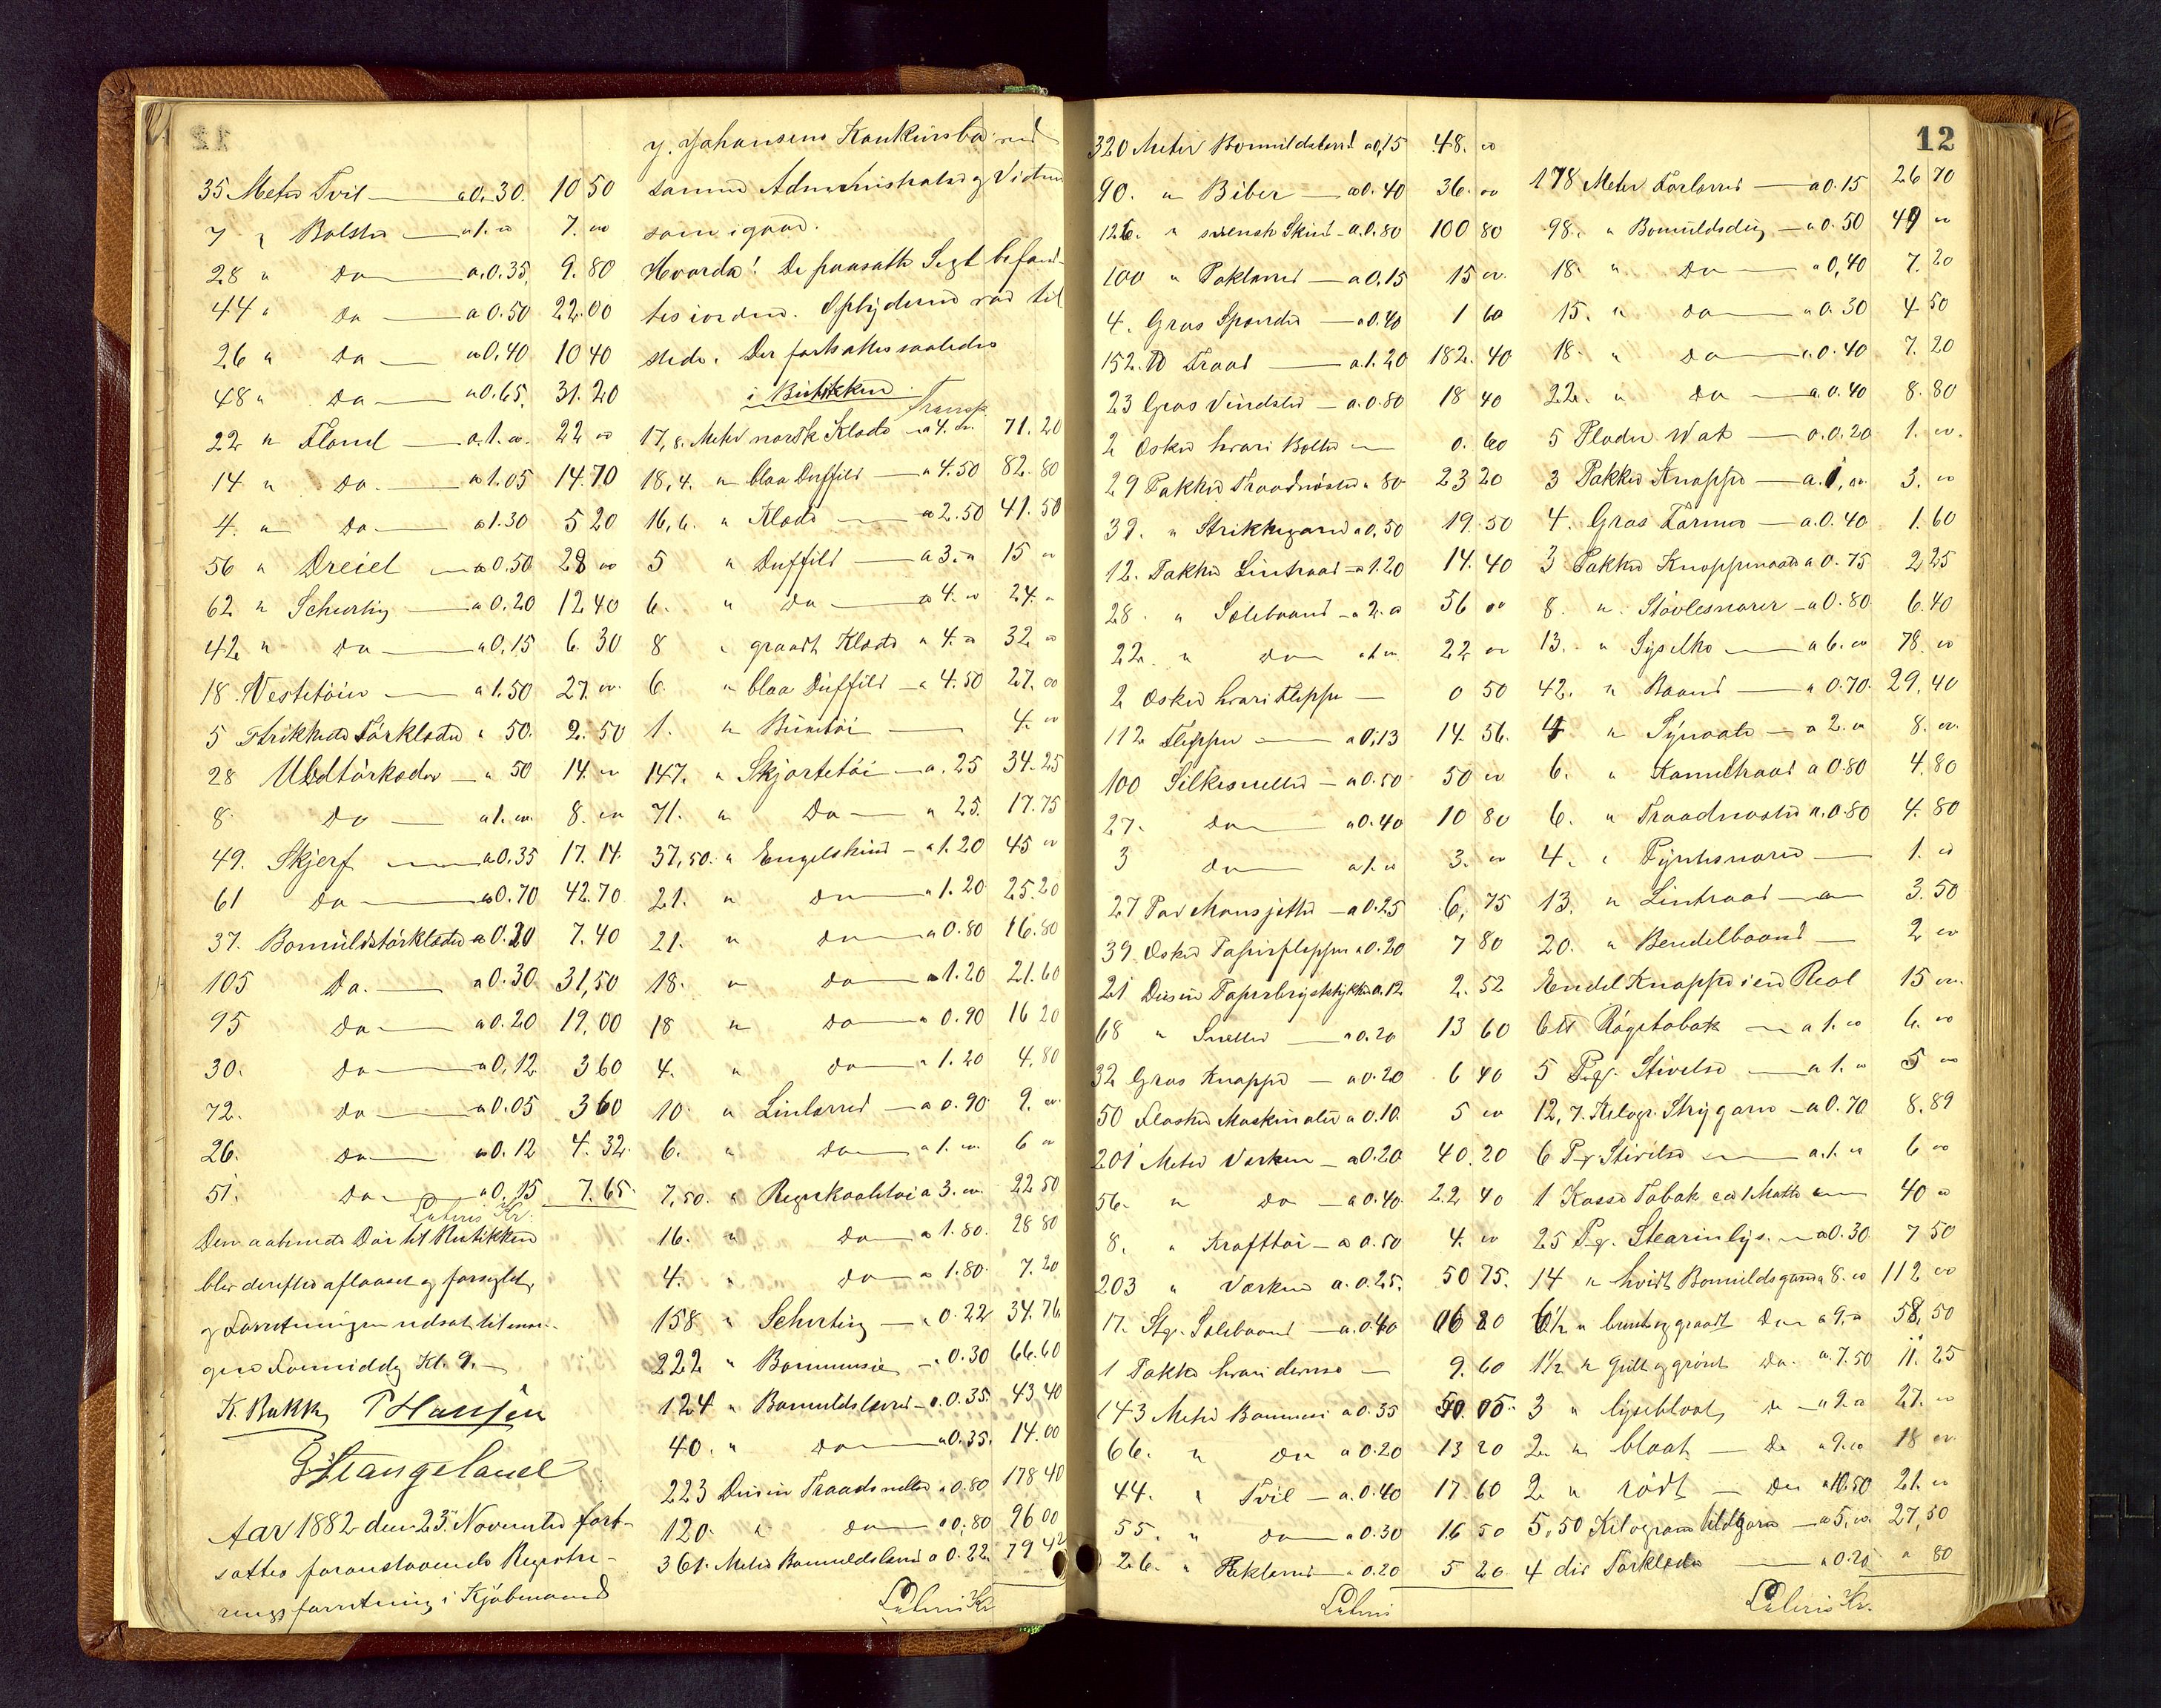 35 Meter Tvil — a 0.30. 10 50
7 " Bolster — a 1. 00 7. 00
28 " Do — a. 0.35. 9. 80
44 " Do — a 0.50 22.00
26 " Do — a 0.40 10 40
48 " Do — a 0.65. 31.20
22 " Flonel — a. 1. 00. 22 00
14 " Do — a 1.05 14.70
4. " Do — a 1.30 5 20
56 " Dreiel — a 0.50 28 00
62 " Schurting — a 0.20 12 40
42 " Do — a 0.15 6. 30
18. Vestetöier — a 1.50 27. 00
5 Strikkede Törklæder " 50. 2. 50
28 Uldtörklæder — " 50 14. 00
8 Do — a 1. 00. 8. 00
49. Skjerf — a 0.35 17. 14.
61 Do — a 0.70 42.70
37. Bomuldstörklæder a 0.20 7.40
105 Do. — a 0.30. 31,50
95 Do — a 0.20 19,00
30. Do — a 0,12 3 60
72. Do — a 0.05 3 60
26. Do — a 0.12 4.32
51. Do — a 0,15 7.65.
Lateris Kr.
Den aabnede Dör til Butikken
blev derefter aflaaset og forseglet,
og Forretningen udsat til mor-
gen Formiddag Kl. 9. —
K. Bakke P Hansen
G Stangeland
Aar 1882 den 23. November fort-
sattes foranstaaende Registre-
ringsforretning i Kjöbmand
J. Johansens Konkursbo ved
samme Administrator og Vidner
som igaar.
Hvorda! De paasatte Segl befand-
tes iorden. Opbyderen var til
stede. Der fortsattes saaledes
i Butikken.
Transp.
17,8. Meter norsk Klæde — a 4. 00. 71.20
18,4. " blaa Duffels — a 4.50 82.80
16,6. " Klæde — a 2.50 41.50
5 " Duffels — a 3. 00 15 00
6. " Do — a 4. 00 24. 00
8 " graadt Klæde a 4. 00 32 00
6. " blaa Duffels — a 4.50 27. 00
1. " — 4. 00
147. " Skjortetöi — a. 25 34.25
71. " Do — " 25. 17.75
37,50. " Engelskind — a 1.20 45 00
21. " Do — a 1.20 25.20
21. " Do — a 0.80 16.80
18. " Do — a 1.20 21.60
18 " Do — a 0.90 16 20
4. " Do — a 1.20 4.80
10. " Linlærred — a 0.90 9. 00
6. " Do — a 1. 00 6 00
7,50. " Regnkaabetöi a 3. 00. 22 50
16. " Do — a 1.80. 28 80
4. " Do — a 1.80. 7.20
158 " Schirting — a 0.22 34.76
222 " Bommesie — a 0.30 66.60
124 " Bomuldslærred — a. 0.35. 43 40
40. " Do — a 0.35. 14.00
223 Dusin Traadsneller a 0.80 178 40
120. " Do — a 0,80 96 00
361. Meter Bomuldslærred a 0.22. 79 42
Lateris Kr.
12
320 Meter Bomuldslærred a 0,15 48. 00
90. " Biber — a 0.40 36. 00
126. " svensk Skind — a. 0.80 100 80
100 " Paklærred — a 0,15 15 00.
4. Gros Spænder — a 0.40 1 60
152. lb Traad — a. 1.20 182. 40
23 Gros — a. 0.80 18 40
2 Æsker hvori — 0. 60
29 Pakker Traadnöster " 80 23 20
39. " Strikkegarn a 0,50 19. 50
12. Pakker Lintraad — a 1.20 14. 40
28. " Sælebaand — a 2. 00 56 00
22. " Do a 1. 00 22 00
2 Æsker hvori Flipper — 0 50
112 Flipper — a 0,13 14. 56.
100 Silkesneller — a 0.50 50 00
27. Do — a 0.40 10 80
3 Do — a 1. 00 3. 00
27 Par Mansjetter — a 0.25 6, 75
39. Æsker Papirflipper a 0.20 7 80
21 Dusin Papirbrystykker a. 12 2. 52
68 " Sneller — a 0.20 13 60
32 Gros Knapper — a 0.20 6 40
50 Flasker Maskinolie a 0.10. 5 00
201 Meter Værken — a 0.20 40. 20
56. " Do — a 0.40. 22 40
8. " Krafttöi — a 0.50 4. 00
203 " Værken a. 0.25. 50 75.
17. Stg. Sælebaand — a. 0.40 6 80
1 Pakke hvori — 9. 60
143 Meter Bommesi a 0.35 50. 05.
66. " Do a 0.20 13 20
44. " Tvil — a. 0.40 17. 60
55. " Do — a 0.30 16 50
26. " Paklærred — a 0.20 5 20
Lateris
178 Meter Forlærred — a 0.15 26 70
98. " Bomuldsdug — a 0.50 49 00
18 " Do — a 0,40 7.20
15. " Do — a 0.30 4 50
18. " Do — a. 0.40 7. 20
22. " Do — a. 0.40 8.80
5 Plader Wat — a. 0.20 1. 00.
3 Pakker Knapper — a. 1, 00. 3. 00
4. Gros — a. 0.40 1.60
3 Pakker Knappenaale a 0.75 2 25
8. " Stövlesnorer — a 0.80 6.40
13. " Sysilke — a 6. 00 78. 00
42. " Baand — a 0.70. 29,40
4 " Synaale — a 2. 00 8. 00.
6. " Kameltraad a 0.80 4.80
6. " Traadnöster a. 0.80 4.80
4. " Pyntesnorer — 1. 00
13. " Lintraad — 3.50
20. " Bendelbaand — 2 00
Endel Knapper i en Reol 15 00.
6 lb Rögetobak — a 1. 00 6. 00
5 Pg. Stivelse — a 1. 00 5 00
12,7. Kilogr. Strygarn — a 0.70 8.89
6 Pg. Stivelse — a. 1. 00 6 00
1 Kasse Tobak ca 1 Matte — 40 00
25 Pg. Stearinlys. — a 0.30 7 50
14 " hvidt Bomuldsgarn a 8. 00 112 00
6½ " brunt og graadt Do a 9. 00 58,50
1½ " gult og grönt Do. a. 7.50 11. 25
3 " lyseblaat, Do — a 9. 00 27. 00
2 " blaat — Do a 9. 00 18 00
2 " rödt — Do a 10.50 21. 00
5,50 Kilogram Uldgarn — a 5, 00. 27,50
4 div Törklæder — a 0.20 " 80
Lateris Kr.